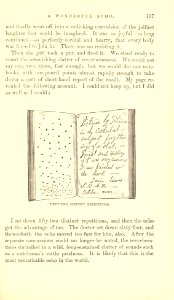 A WONDERFUL ECHO. 197
and finally went off into a rollicking convulsion of the jolliest
laughter that could be imagined. It was so joyful—so long
continued—so perfectly cordial and hearty, that every body
was forced to join in. There was no resisting it.
Then the girl took a gun and fired it. We stood ready to
count the astonishing clatter of reverberations. We could not
say one, two, three, fast enough, but we could dot our note-
books with our pencil points almost rapidly enough to take
down a sort of short-hand report of the result. My page re-
vealed the following account. I could not keep up, but I did
as well as I could:
FIFTY-TWO DISTINCT REPETITIONS.
I set down fifty-two distinct repetitions, and then the echo
got the advantage of me. The doctor set down sixty-four, and
thenceforth the echo moved too fast for him, also. After the
separate concussions could no longer be noted, the reverbera-
tions dwindled to a wild, long-sustained clatter of sounds such
as a watchman's rattle produces. It is likely that this is the
most remarkable echo in the world.